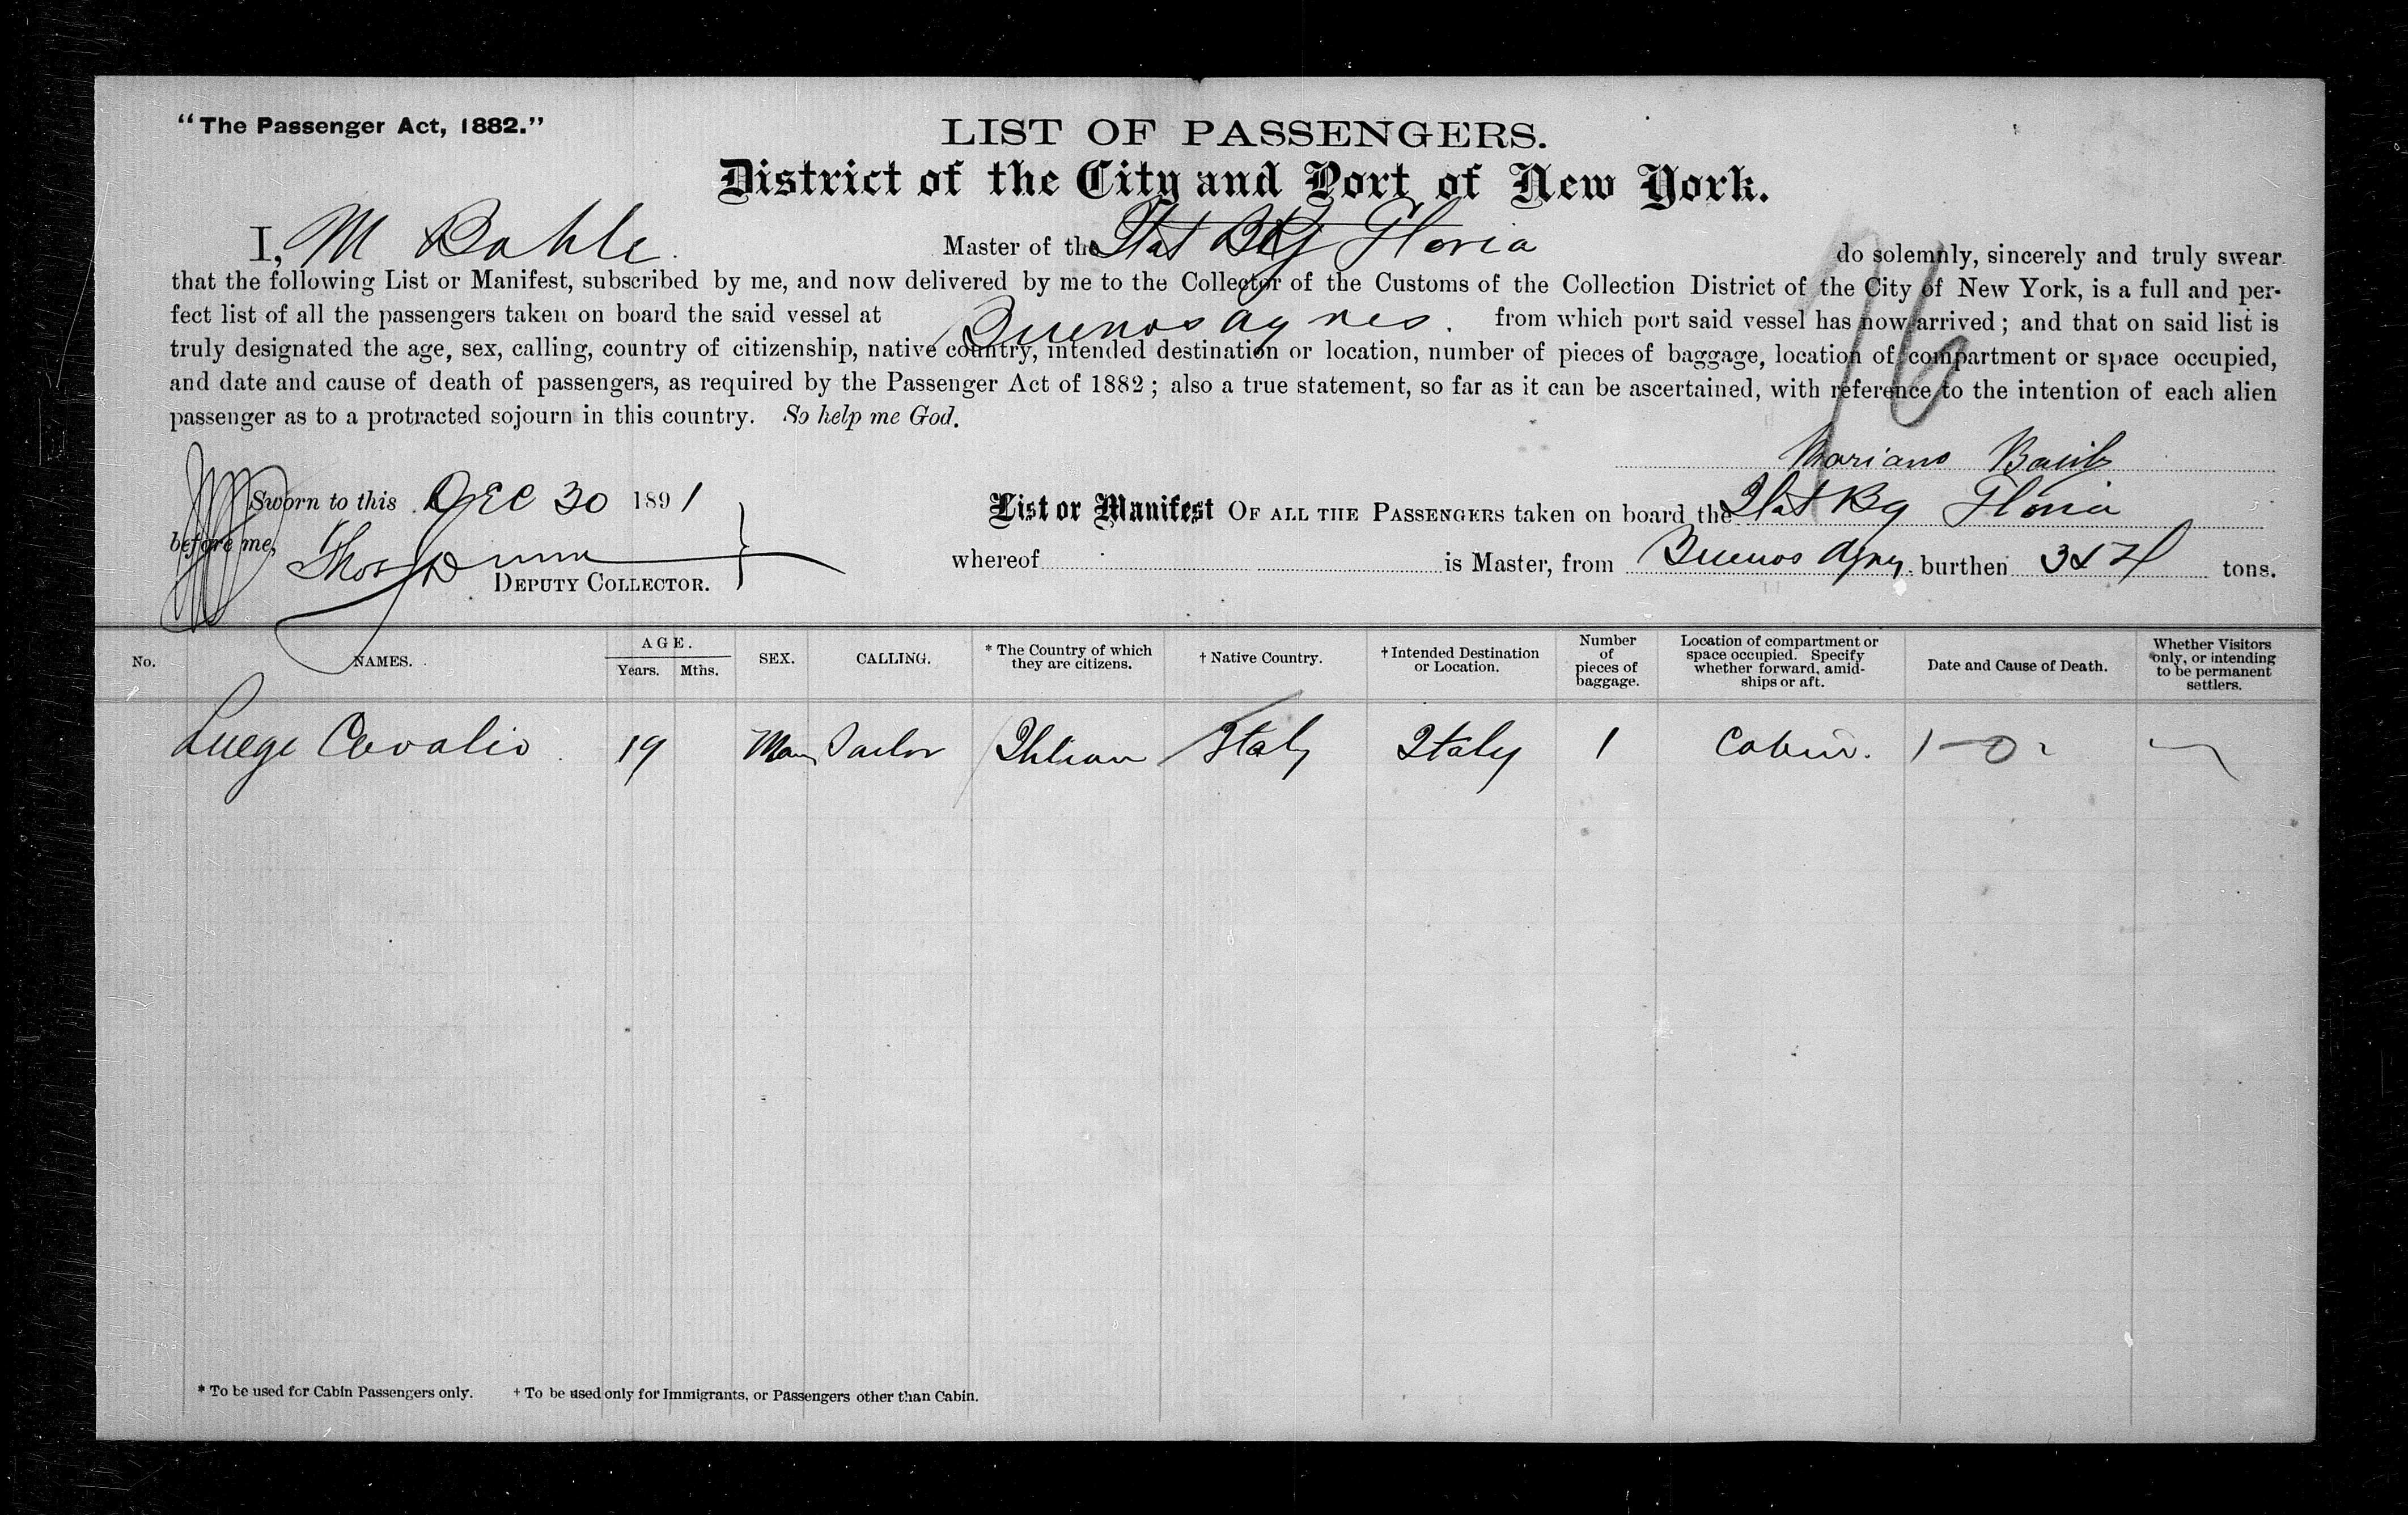 "The Passenger Act, 1882."
LIST OF PASSENGERS.
District of the City and Port of New York.
I, M Master of the Gloria do solemnly, sincerely and truly swear
that the following List or Manifest, subscribed by me, and now delivered by me to the Collector of the Customs of the Collection District of the City of New York, is a full and per-
fect list of all the passengers taken on board the said vessel at Buenos Ayres. from which port said vessel has now arrived; and that on said list is
truly designated the age, sex, calling, country of citizenship, native country, intended destination or location, number of pieces of baggage, location of compartment or space occupied,
and date and cause of death of passengers, as required by the Passenger Act of 1882; also a true statement, so far as it can be ascertained, with reference to the intention of each alien
passenger as to a protracted sojourn in this country. So help me God.
76
Mariano
Sworn to this DEC 30 1891
before me, Thos Dunn
DEPUTY COLLECTOR.
List or Manifest OF ALL THE PASSENGERS taken on board the Gloria
whereof is Master, from Buenos Ayres burthen tons.
No. NAMES. AGE. Years. Mths. SEX. CALLING. * The Country of which they are citizens. † Native Country. † Intended Destination or Location. Number of pieces of baggage. Location of compartment or space occupied. Specify whether forward, amid-ships or aft. Date and Cause of Death. Whether Visitors only, or intending to be permanent settlers.
Luege 19 Man Sailor Italy Italy 1 Cabin.
* To be used for Cabin Passengers only. † To be used only for Immigrants, or Passengers other than Cabin.